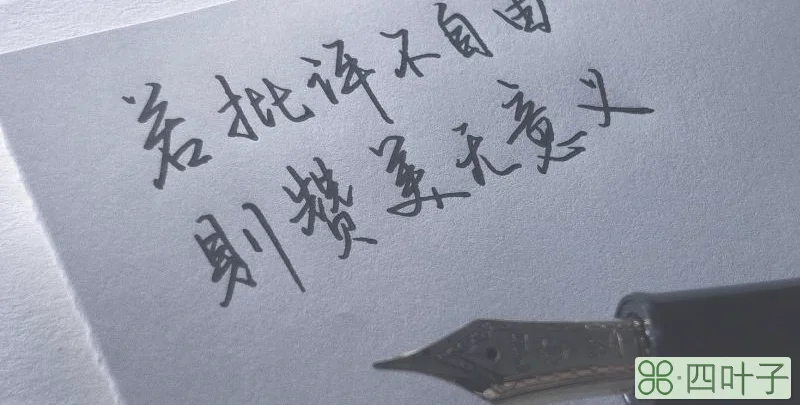 若批评不自由
则赞美无意义
四叶子